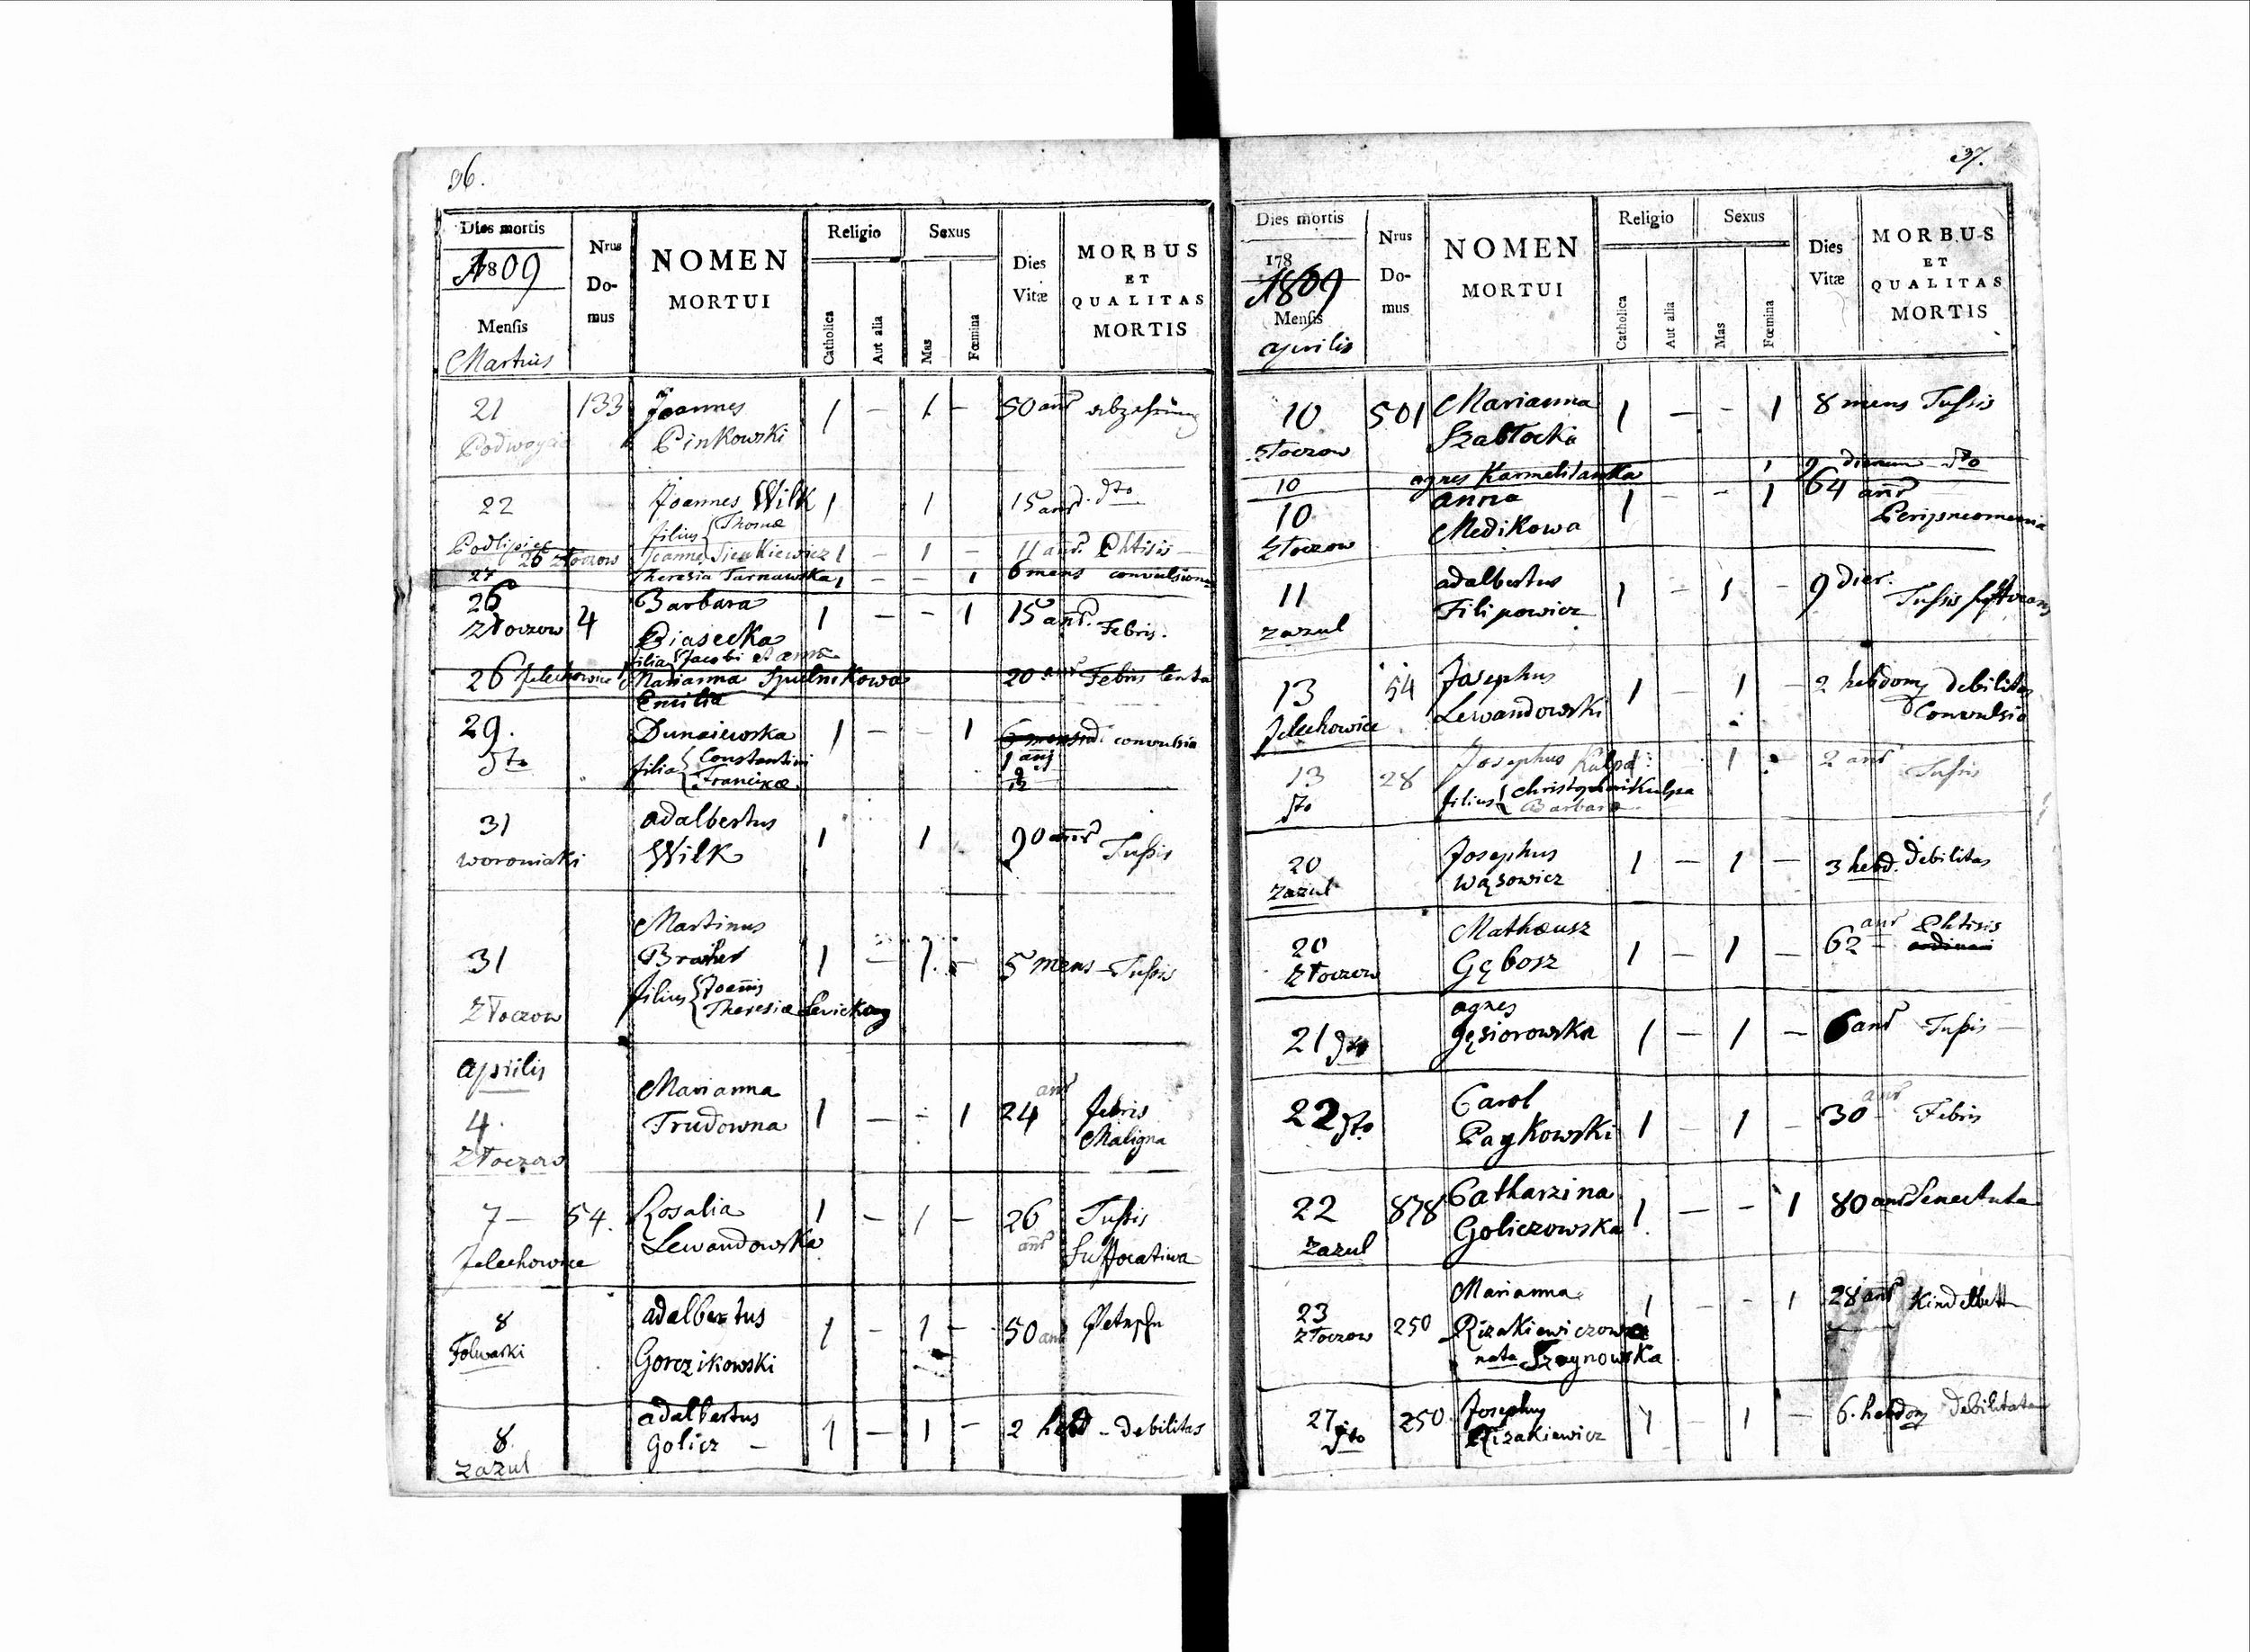 36.
Dies mortis
1809
Mensis
Martius
Nrus
Do-
mus
NOMEN
MORTUI
Religio
Catholica
Aut alia
Sexus
Mas
Fœmina
Dies
Vitæ
MORBUS
ET
QUALITAS
MORTIS
21 133 Joannes 1 – 1 – 50 anr abzehrung
Pinkowski
22 Joannes Wilk 1 1 15 anr dto
filius Thomæ
Podlipice
26 Złoczow Joannes Sienkiewicz 1 – 1 – 11 anr. Phtisis
27 Theresia Tarnawska 1 – – 1 6 mens convulsion
26 Barbara
Złoczow 4 Biasecka 1 – – 1 15 anr. Febris.
filia Jacobi et annæ
26 Jelechowice Marianna Spulnikowa 20 anr Febris lenta
Emilia
29. Dunaiewska 1 – – 1 6 mens convulsia
dto filia Constantini 1 anj
Franciscæ 9/12
31 adalbertus
woroniaki Wilk 1 1 90 annr Tussis
Martinus
31 1 – 1 – 5 mens – Tussis
filius Joannis
Złoczow Theresiæ
aprilis
4. Marianna
Trudowna 1 – – 1 24 anr febris
Złoczow Maligna
7 – 54. Rosalia 1 – 1 – 26 Tussis
Jelechowice Lewandowska anr Suffocatiwa
8 adalbertus
Folwarki Gorczikowski 1 – 1 – 50 anr
8 adalbertus
zazul Golicz – 1 – 1 – 2 hebd – debilitas
37.
Dies mortis
178
1809
Mensis
aprilis
Nrus
Do-
mus
NOMEN
MORTUI
Religio
Catholica
Aut alia
Sexus
Mas
Fœmina
Dies
Vitæ
MORBUS
ET
QUALITAS
MORTIS
10 501 Marianna 1 – – 1 8 mens Tussis
Złoczow Szabłocka
10 agnes Karmelitanka 1 9 dierum dto
10 anna 1 – – 1 64 anr
Złoczow Medikowa
11 adalbertus 1 – 1 – 9 dier.
zazul Filipowicz Tussis
13 54 Josephus 1 – 1 – 2 hebdom debilitas
Jelechowice Lewandowski Convulsio
13 28 Josephus Kulpa 1 2 anr Tussis
dto filius Christophori Kulpa
Barbaræ
20 Josephus 1 – 1 – 3 hebd. debilitas
zazul Wąsowicz
20 Mathæusz 1 – 1 – 62 anr Phtisis
Złoczow Gębosz
agnes
21 dto Gęsiorowska 1 – 1 – 6 anr Tussis
22 dto Carol
Paykowski 1 – 1 – 30 anr Febris
22 878 Catharzina 1 – – 1 80 anr Senectute
zazul Goliczowska
23 Marianna 1 – – 1 28 anr Kindelbett
Złoczow 250 Rizakiewiczowa
nata Szaynowska
27 250 Josephus 1 – 1 – 6. hebdom debilitate
dto Rizakiewicz